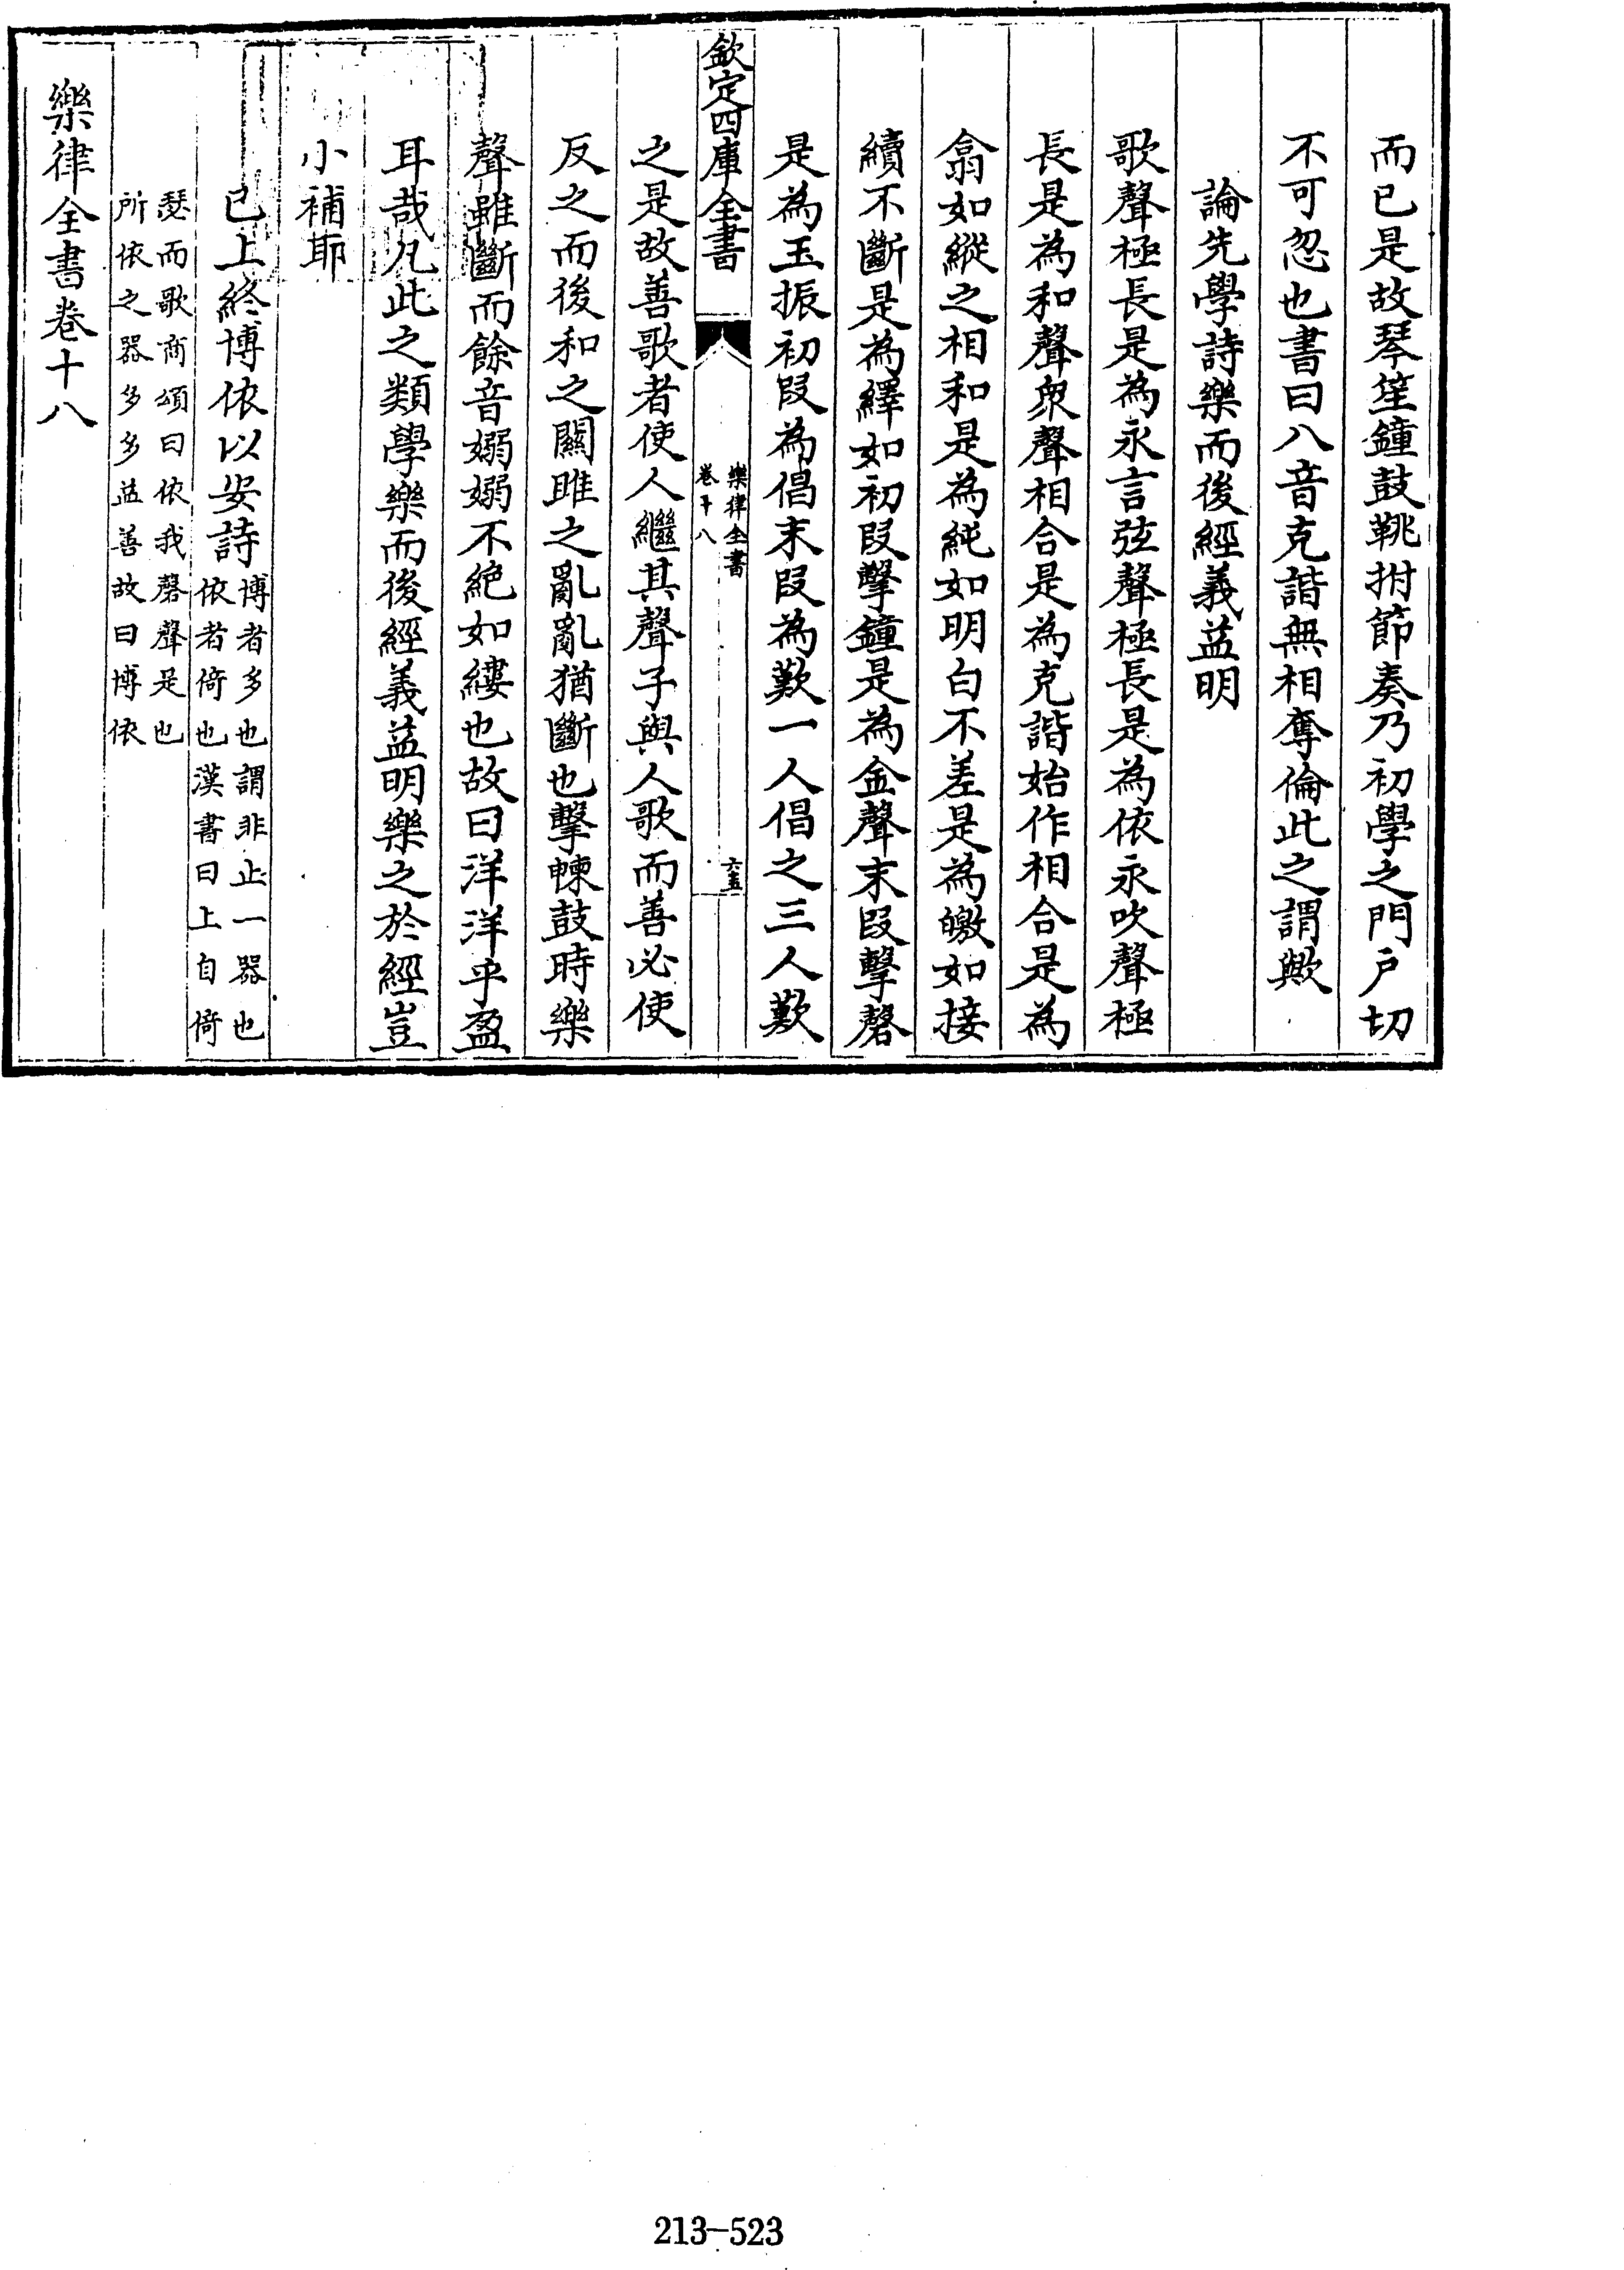 而已是故琴笙鐘鼓鞉拊節奏乃初學之門戶切
不可忽也書曰八音克諧無相奪倫此之謂歟
論先學詩樂而後經義益明
歌聲極長是為永言弦聲極長是為依永吹聲極
長是為和聲衆聲相合是為克諧始作相合是為
翕如縱之相和是為純如明白不差是為皦如接
續不斷是為繹如初段擊鐘是為金聲末段擊磬
是為玉振初段為倡末段為歎一人倡之三人歎
欽定四庫全書
樂律全書
卷十八
六五
之是故善歌者使人繼其聲子與人歌而善必使
反之而後和之關雎之亂亂猶斷也擊朄鼓時樂
聲雖斷而餘音嫋嫋不絕如縷也故曰洋洋乎盈
耳哉凡此之類學樂而後經義益明樂之於經豈
小補耶
已上終博依以安詩
博者多也謂非止一器也
依者倚也漢書曰上自倚
瑟而歌商頌曰依我磬聲是也
所依之器多多益善故曰博依
樂律全書卷十八
213-523